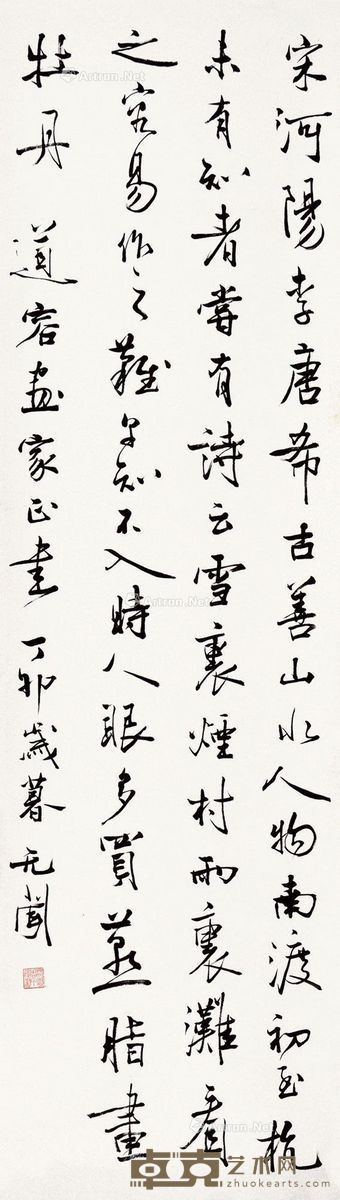 宋河陽李唐希古善山水人物南渡初至杭
未有知者嘗有詩云雪裏煙村雨裏灘看
之容易作之難早知不入時人眼多買燕脂畫
牡丹　道容畫家正畫丁卯歲暮无聞
Artron.Net
卓克艺术网
www.zhuokearts.com